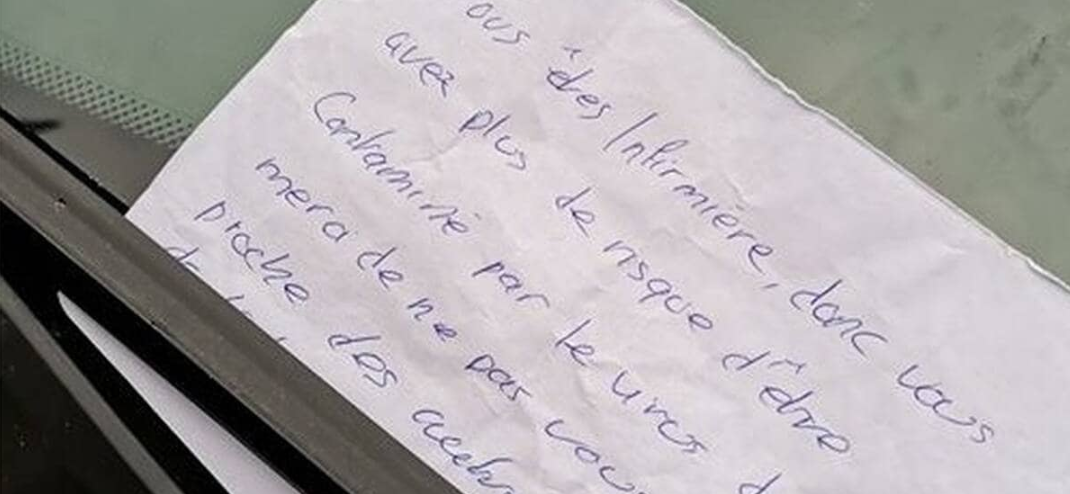 ous êtes Infirmière, donc vous
avez plus de risque d'être
Contaminé par le virus d
mera de ne pas vou
proche des
de